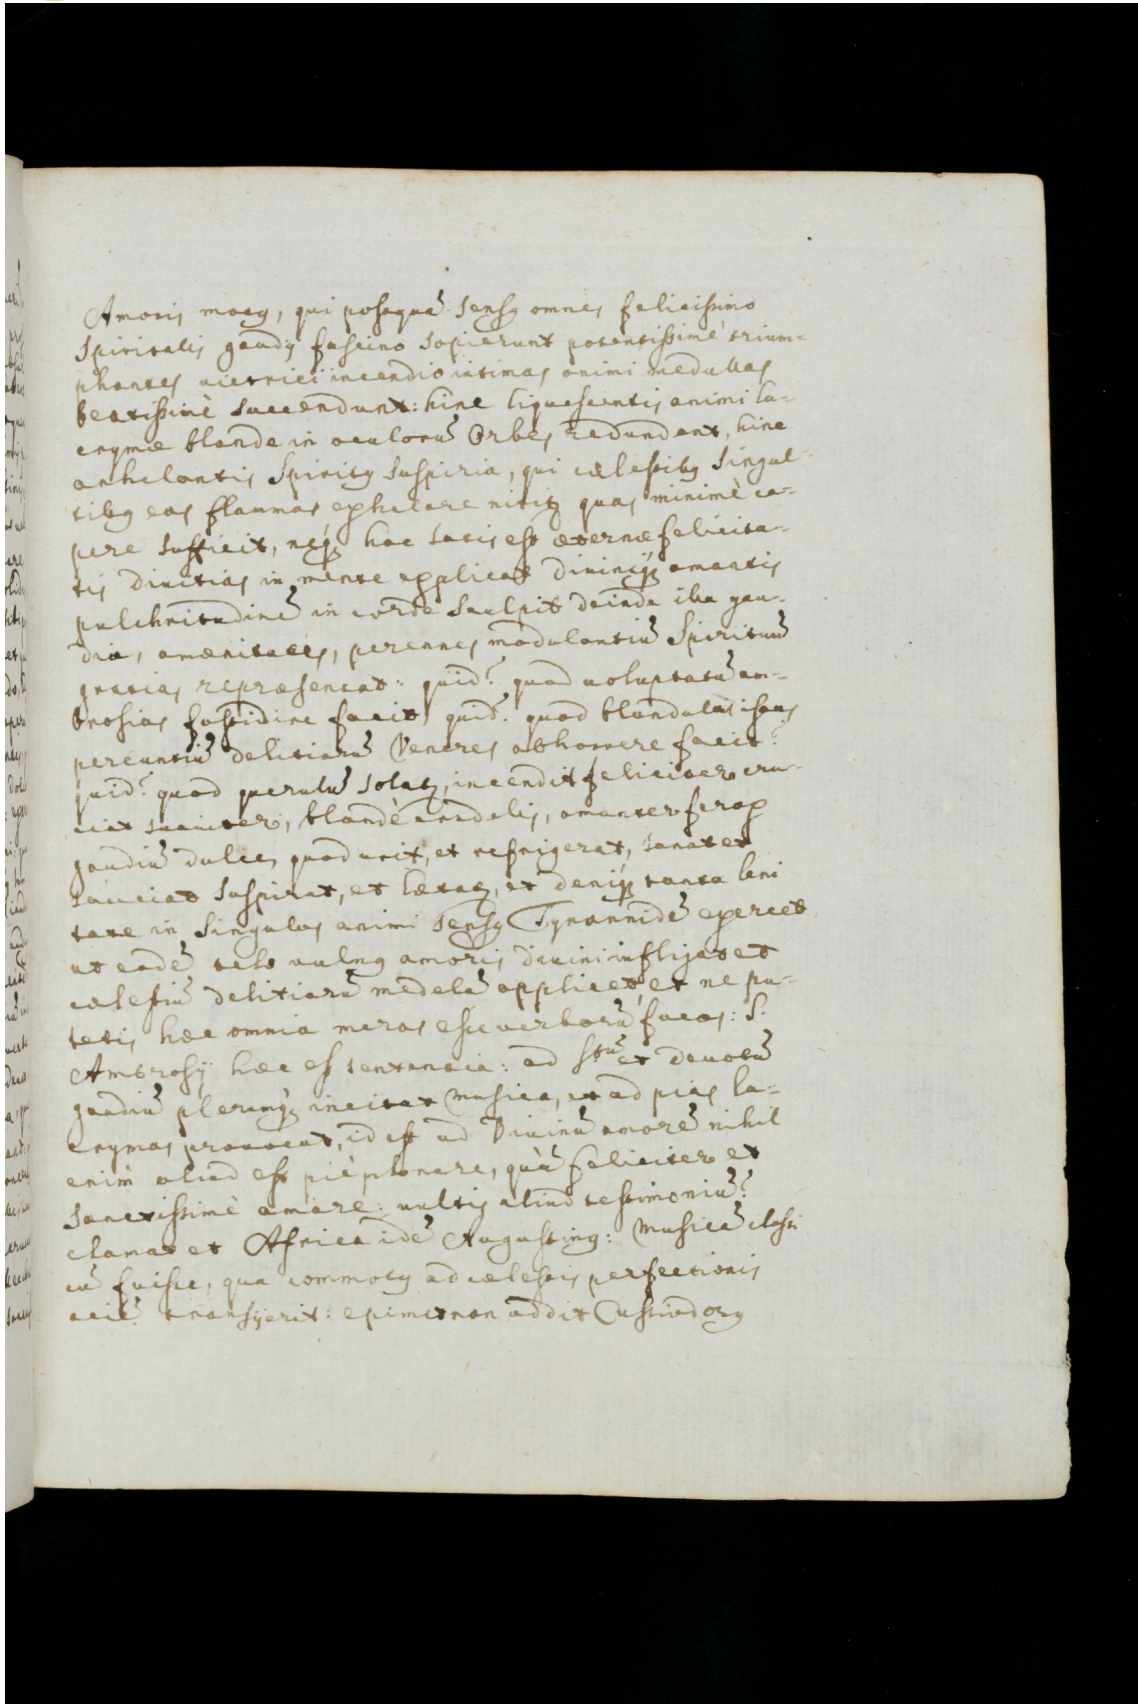 Amoris motꝰ, qui posaquā sensꝰ omnes felicissimo
spiritalis gaudij fascino sopierunt potentissimè trium-
phantes uictrici incendio intimas animi medullas
beatissimè succendunt: hinc liquescentis animi la-
crymæ blande in oculorū Orbes redundant, hinc
anhelantis Spiritꝰ suspiria, qui cælestibꝰ singul-
tibꝰ eas flammas exhalare nititꝛ quas minimè ca-
pere sufficit, neqꝫ hac satis est æternæ felicita-
tis diuitias in mente explicat diuiniqꝫ amantis
pulchritudinē in corde sculpit deinde illa gau-
dia, amænitates, perennes modulantiū Spirituū
gratias repræsentat: quid? quod uoluptatū am-
brosias fastidire facit, quid? quod blandulas istas
pereuntiū delitiarū Veneres abhorrere facit?
quid? quod querulū solatꝛ, incendit feliciter cru-
ciat suauiter, blandè crudelis, amanter ferox
gaudiū dulce, quod urit, et refrigerat, sanat et
sauciat suspirat, et lætatꝛ, et deniqꝫ tanta leni
tate in singulos animi sensꝰ Tyrannidē exercet
ut eadē telo uulnꝰ amoris diuini infligat et
cælestiū delitiarū medelā applicet, et ne pu-
tetis hæc omnia meras esse uerborū fucos: S.
Ambrosij hæc est sententia: ad Stū et deuotū
gaudiū plerumqꝫ incitat Musica, et ad pias la-
crymas prouocat, id est ad Diuinū amorē nihil
enim aliud est piè plorare, quā feliciter et
sanctissimè amare: uultis aliud testimoniū?
clamat et Africa idē Augustinꝰ: Musicā classi
cū fuisse, qua commotꝰ ad cælestis perfectionis
aciē transyerit: epimetron addit Cassiodorꝰ